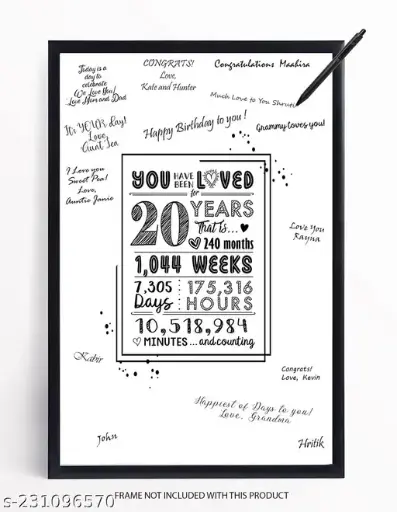 Today is a
day to
celebrate
We Love You!
Love Mom and Dad
CONGRATS!
Love,
Kate and Hunter
Congratulations Maahira
Much Love to You Shruti
It's YOUR day!
Love,
Aunt Tea
Happy Birthday to you !
Grammy loves you!
I Love you
Sweet Pea!
Love,
Auntie Janie
YOU HAVE BEEN LOVED
for
20 YEARS
That is...
240 months
1,044 WEEKS
7,305 Days
175,316 HOURS
10,518,984
MINUTES ...and counting
Love You
Rayna
Kabir
Congrats!
Love, Kevin
Happiest of Days to you!
Love, Grandma
John
Hritik
s-231096570
FRAME NOT INCLUDED WITH THIS PRODUCT